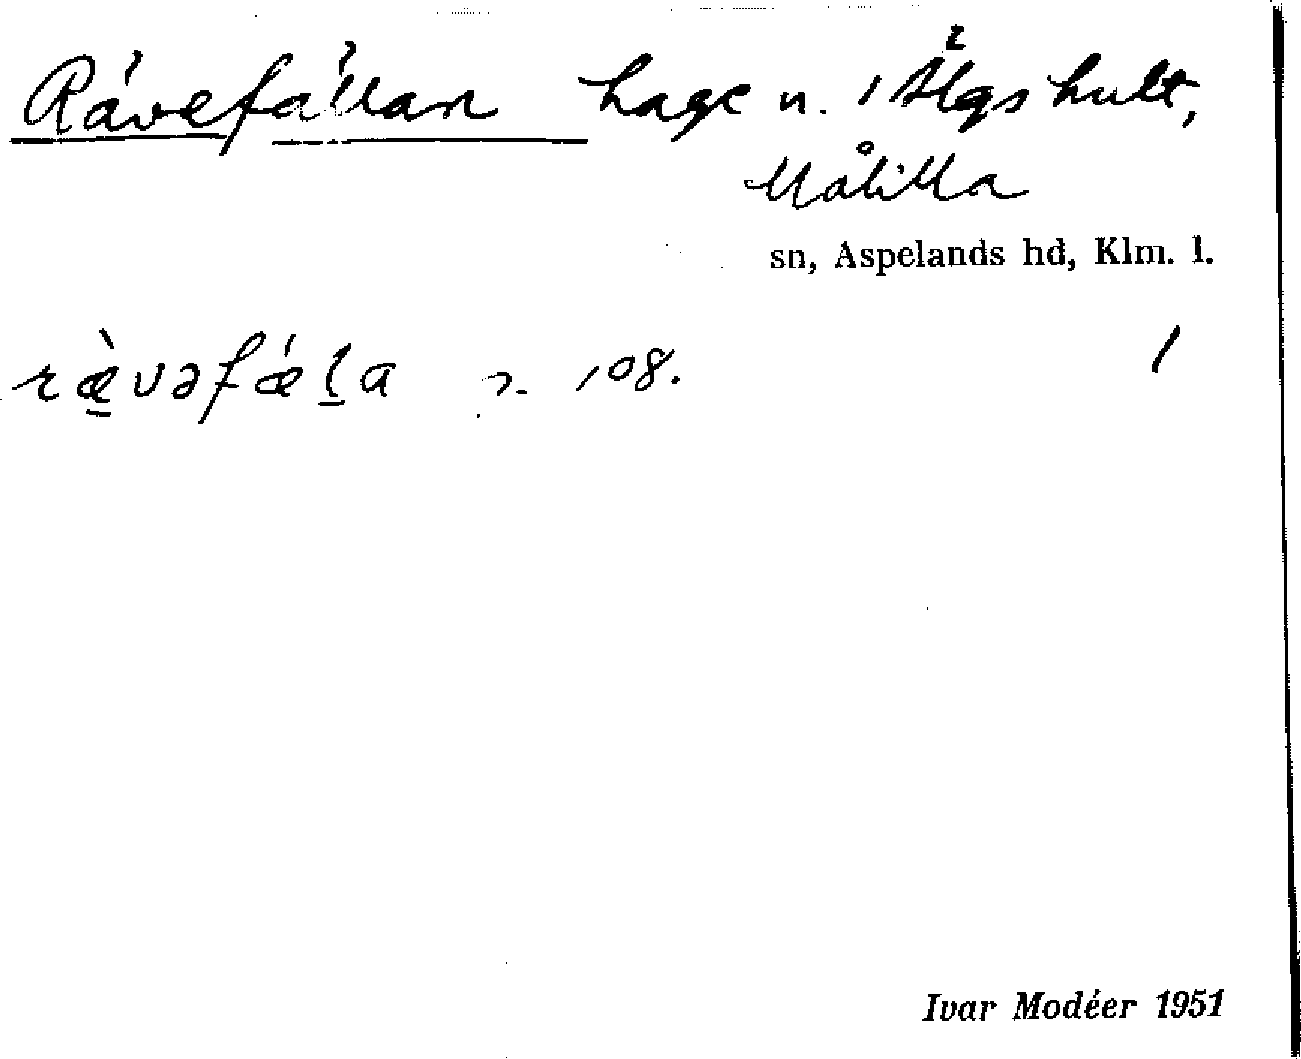 Rävefällan hage u. Älgshult,
Målilla
sn, Aspelands hd, Klm. l.
ræ̀vəfǽl̠a 108. 1
Ivar Modéer 1951